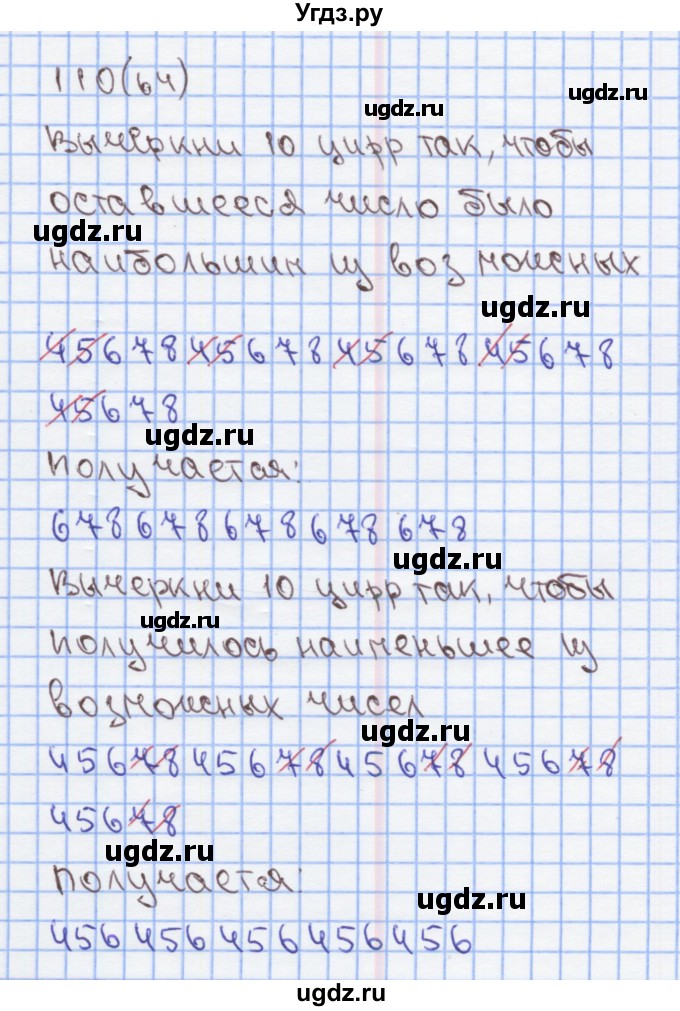 Угдз.ру
110(64)
ugdz.ru ugdz.ru
Вычеркни 10 цифр так, чтобы
ugdz.ru
оставшееся число было
ugdz.ru
наибольшин из возможных
ugdz.ru
45678 45678 45678 45678
45678
ugdz.ru
Получается:
678 678 678 678 678
ugdz.ru
Вычеркни 10 цифр так, чтобы
ugdz.ru
получилось наименьшее из
возможных чисел
ugdz.ru
45678 45678 45678 45678
45678
ugdz.ru
Получается:
ugdz.ru
456 456 456 456 456
ugdz.ru